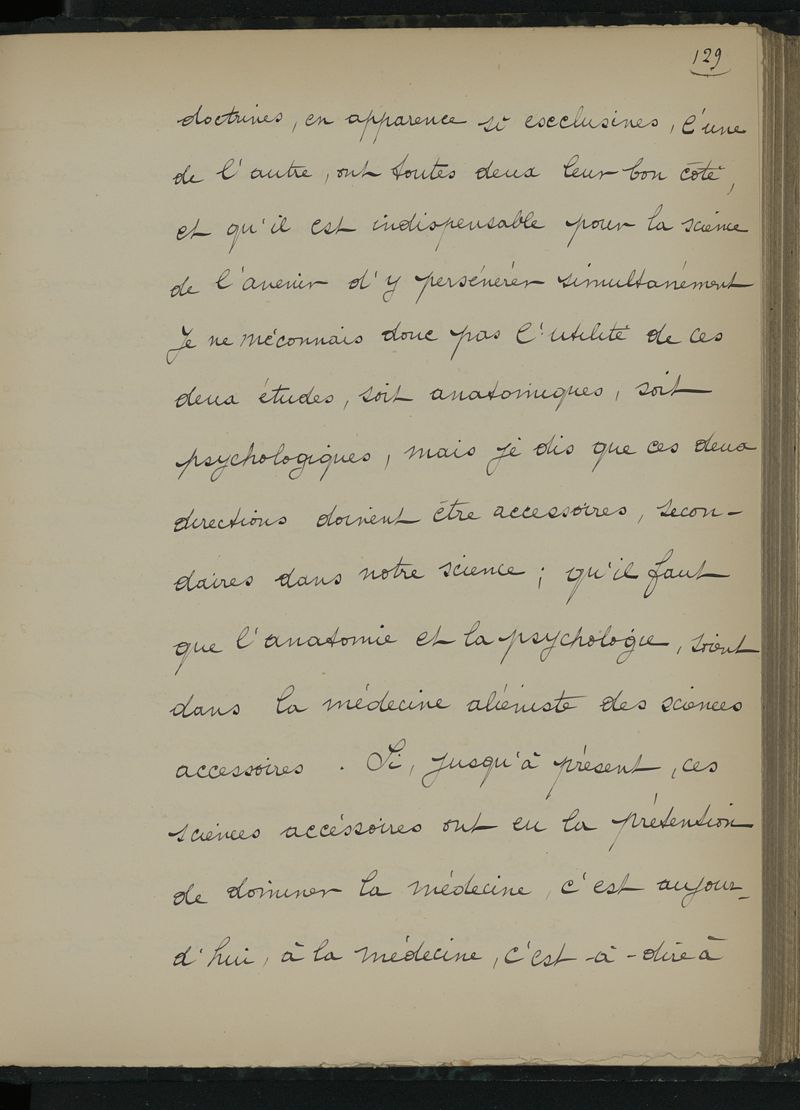 129
doctrines, en apparence si exclusives, l'une
de l'autre, ont toutes deux leur bon côté,
et qu'il est indispensable pour la science
de l'avenir d'y persévérer simultanément
Je ne méconnais donc pas l'utilité de ces
deux études, soit anatomiques, soit
psychologiques, mais je dis que ces deux
directions doivent être accessoires, secon-
daires dans notre science ; qu'il faut
que l'anatomie et la psychologie, soient
dans la médecine aliéniste des sciences
accessoires. Si, jusqu'à présent, ces
sciences accéssoires ont eu la prétention
de dominer la médecine, c'est aujour-
d'hui, à la médecine, c'est-à-dire à